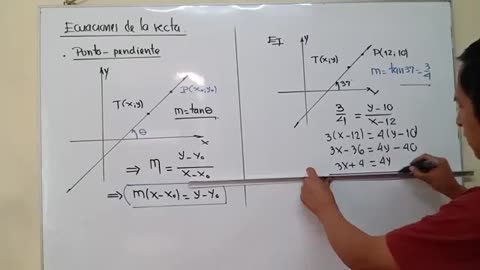 Ecuaciones de la recta.
• Punto-pendiente
y
P(x₀,y₀)
T(x,y)
m=tanθ
θ
x
⇒ m = y-y₀ / x-x₀
⇒ m(x-x₀)=y-y₀
Ej
y
T(x,y)
P(12,10)
m=tan37=3/4
37°
x
3/4 = y-10 / x-12
3(x-12)=4(y-10)
3x-36=4y-40
3x+4=4y